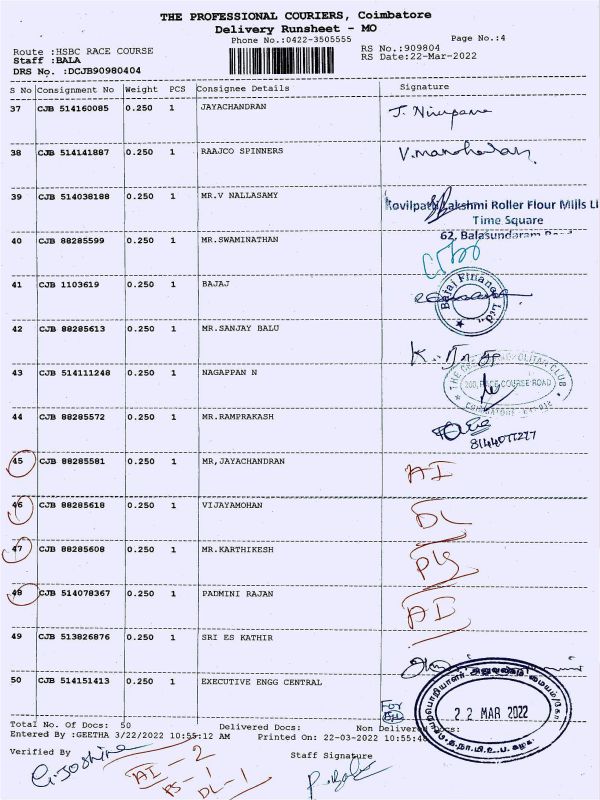 THE PROFESSIONAL COURIERS, Coimbatore
Delivery Runsheet - MO
Phone No.:0422-3505555
Page No.:4
Route :HSBC RACE COURSE
RS No.:909804
Staff :BALA
RS Date:22-Mar-2022
DRS No. :DCJB90980404
S No Consignment No Weight PCS Consignee Details Signature
37 CJB 514160085 0.250 1 JAYACHANDRAN J. Nirupama
38 CJB 514141887 0.250 1 RAAJCO SPINNERS V.manoharan
39 CJB 514038188 0.250 1 MR.V NALLASAMY
Kovilpatti Lakshmi Roller Flour Mills Li
Time Square
62, Balasundaram Road
40 CJB 88285599 0.250 1 MR.SWAMINATHAN
41 CJB 1103619 0.250 1 BAJAJ
Bajaj Finance Ltd.,
42 CJB 88285613 0.250 1 MR.SANJAY BALU
43 CJB 514111248 0.250 1 NAGAPPAN N
200, RACE COURSE ROAD
44 CJB 88285572 0.250 1 MR.RAMPRAKASH
45 CJB 88285581 0.250 1 MR,JAYACHANDRAN AI
46 CJB 88285618 0.250 1 VIJAYAMOHAN DL
47 CJB 88285608 0.250 1 MR.KARTHIKESH
48 CJB 514078367 0.250 1 PADMINI RAJAN AI
49 CJB 513826876 0.250 1 SRI ES KATHIR
50 CJB 514151413 0.250 1 EXECUTIVE ENGG CENTRAL
For
22 MAR 2022
Total No. Of Docs: 50 Delivered Docs: Non Delivered Docs:
Entered By :GEETHA 3/22/2022 10:55:12 AM Printed On: 22-03-2022 10:55:48
Verified By Staff Signature
G.Joshina
AI - 2
DL - 1